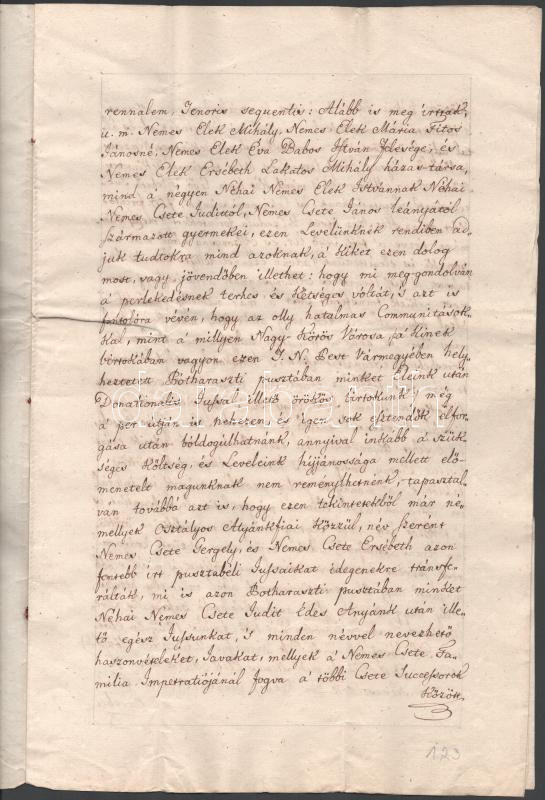 rennalem, Tenoris sequentis: Alább is meg írtak,
u. m. Nemes Elek Mihály, Nemes Elek Mária Titos
Jánosné, Nemes Elek Éva Babos István Felesége, és
Nemes Elek Ersébeth Lakatos Mihály házas-társa,
mind a' négyen Néhai Nemes Elek Istvannak Néhai
Nemes Csete Judittól, Nemes Csete János leányától
származott gyermekei, ezen Levelünknek rendiben ad-
juk tudtokra mind azoknak, a' kiket ezen dolog
most, vagy jövendőben illethet: hogy mi meg-gondolván
a' perlekedésnek terhes és kétséges vóltát, 's azt is
fontolóra vévén, hogy az olly hatalmas Communitások-
kal, mint a' millyen Nagy-Kőrös Várossa, a' kinek
birtokában vagyon ezen T. N. Pest Vármegyében hely-
heztetett Botharaszti pusztában minket Eleink után
Donationalis Jussal illető örökös birtokunk, még
a' per útján is nehezen, és igen sok Esztendők elfor-
gása után bóldogúlhatnánk, annyival inkább a' szük-
séges költség, és Leveleink híjjánossága mellett elő-
menetelt magunknak nem reménylhetnénk, tapasztal-
ván továbbá azt is, hogy ezen tekéntetekből már né-
mellyek Osztályos Atyánkfiai közzül, név szerént
Nemes Csete Gergely, és Nemes Csete Ersébeth azon
fentebb írt pusztabéli Jussaikat idegenekre tránsfe-
rálták, mi is azon Botharaszti pusztában minket
Néhai Nemes Csete Judit Édes Anyánk után ille-
tő egész Jussunkat, 's minden névvel nevezhető
haszonvételeket, Javakat, mellyek a' Nemes Csete Fa-
milia Impetratiójánál fogva a' többi Csete Successorok
között
123